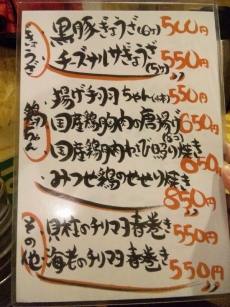 ぎょうざ
黒豚ぎょうざ(6ケ) 500円
チーズナルザぎょうざ(5ケ) 550円
鶏ちゃん
揚げ手羽ちゃん(4本) 550円
国産鶏胸肉の唐揚げ 650円
国産鶏胸肉わさび照り焼き 650円
みつせ鶏のせせり焼き 850円
その他
貝柱のチリマヨ春巻き 550円
海老のチリマヨ春巻き 550円